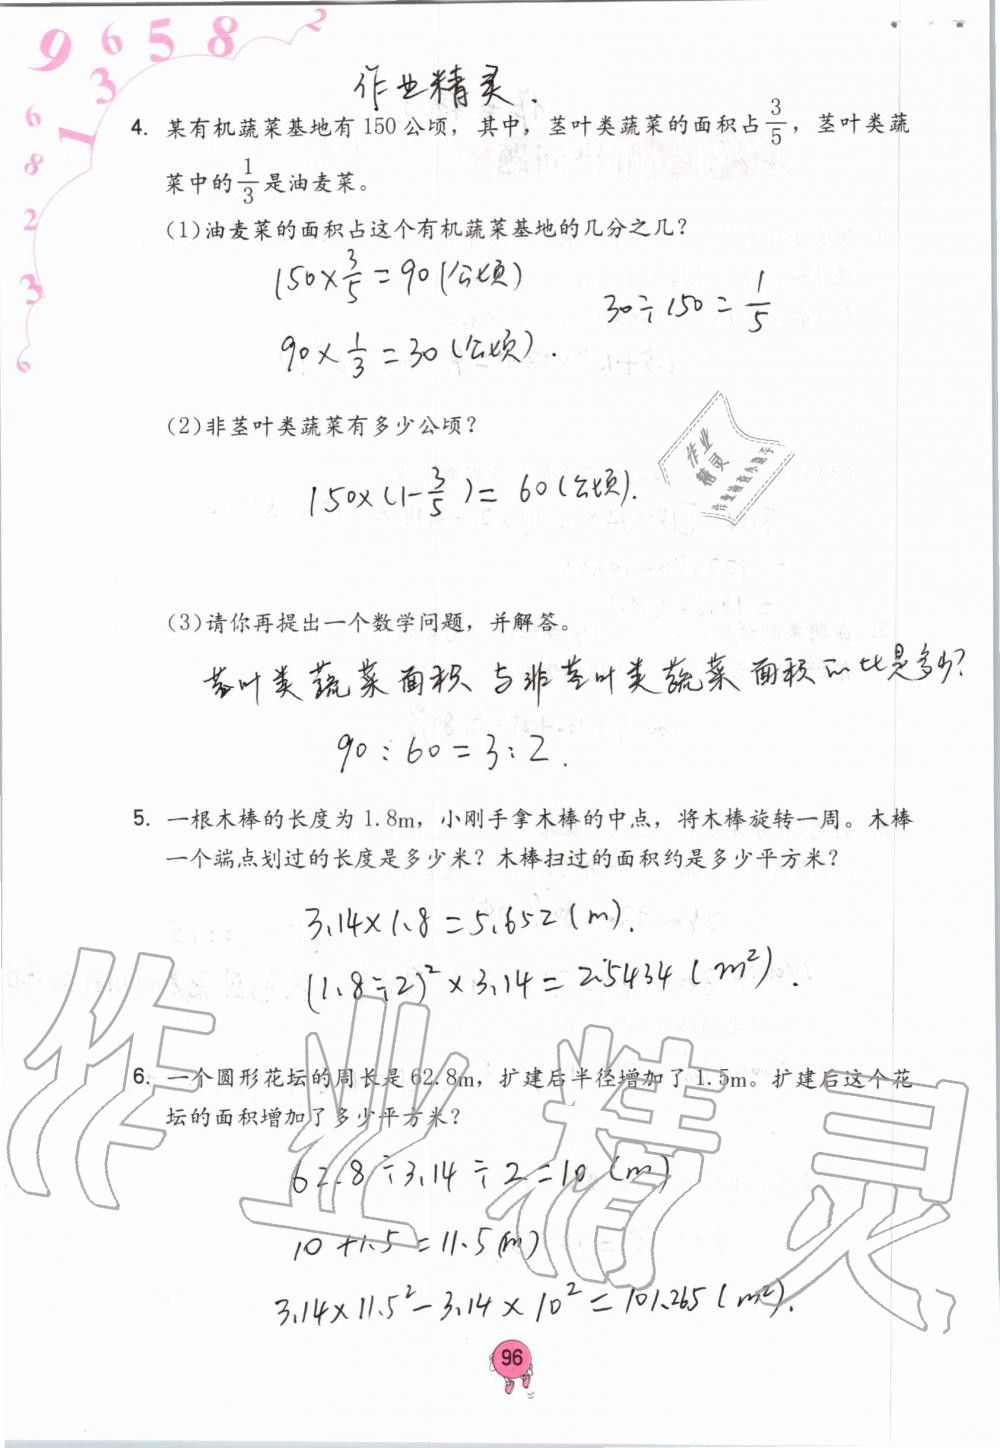 9 6 5 8 2
3
1
6
8
2
3
6
作业精灵.
4. 某有机蔬菜基地有 150 公顷，其中，茎叶类蔬菜的面积占3/5，茎叶类蔬
菜中的1/3是油麦菜。
(1)油麦菜的面积占这个有机蔬菜基地的几分之几？
150×3/5=90(公顷)
30÷150=1/5
90×1/3=30(公顷).
(2)非茎叶类蔬菜有多少公顷？
作业
精灵
150×(1-3/5)=60(公顷).
(3)请你再提出一个数学问题，并解答。
茎叶类蔬菜面积与非茎叶类蔬菜面积的比是多少?
90:60=3:2.
5. 一根木棒的长度为 1.8m，小刚手拿木棒的中点，将木棒旋转一周。木棒
一个端点划过的长度是多少米？木棒扫过的面积约是多少平方米？
3.14×1.8=5.652(m).
(1.8÷2)²×3.14=2.5434(m²).
6. 一个圆形花坛的周长是 62.8m，扩建后半径增加了 1.5m。扩建后这个花
坛的面积增加了多少平方米？
62.8÷3.14÷2=10(m)
10+1.5=11.5(m)
3.14×11.5²-3.14×10²=101.265(m²).
作业精灵
96